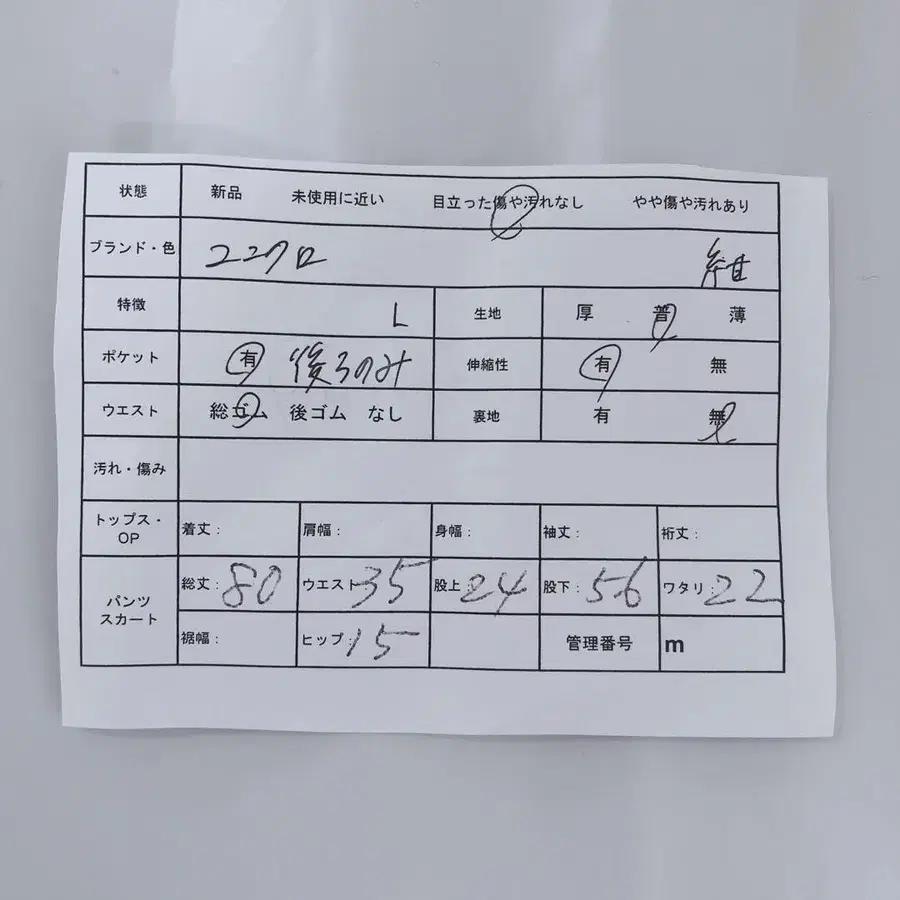 状態 新品 未使用に近い 目立った傷や汚れなし やや傷や汚れあり
ブランド・色 ユニクロ 紺
特徴 L 生地 厚 普 薄
ポケット 有 後ろのみ 伸縮性 有 無
ウエスト 総ゴム 後ゴム なし 裏地 有 無
汚れ・傷み
トップス・OP 着丈: 肩幅: 身幅: 袖丈: 裄丈:
パンツ スカート 総丈:80 ウエスト35 股上:24 股下:56 ワタリ:22
裾幅: ヒップ:15 管理番号 m